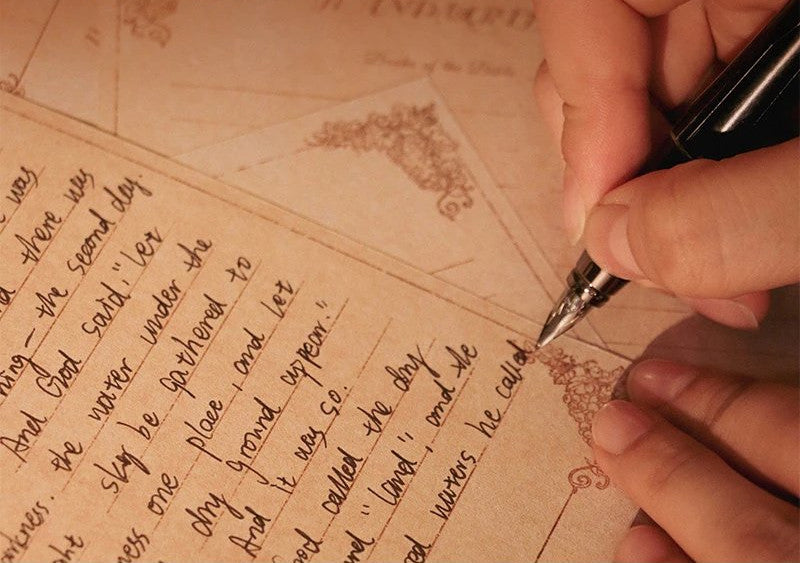 e was
d there was
ning— the second day.
And God said, "Let
the water under the
sky be gathered to
one place, and let
dry ground appear."
And it was so.
ood called the dry
und "land", and the
ed waters he called
arkness.
ght
ness
of the